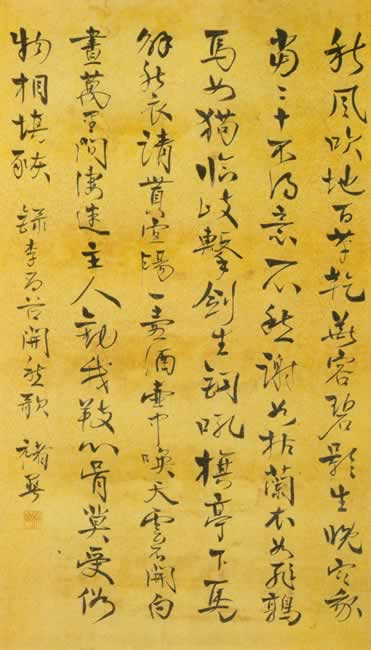 秋風吹地百草乾華容碧影生晚寒我
當二十不得意一心愁謝如枯蘭衣如飛鶉
馬如狗臨岐擊劍生銅吼旗亭下馬
解秋衣請貰宜陽一壺酒壺中喚天雲不開白
晝萬里閒淒迷主人勸我養心骨莫受俗
物相填豗 錄李昌谷開愁歌 褚